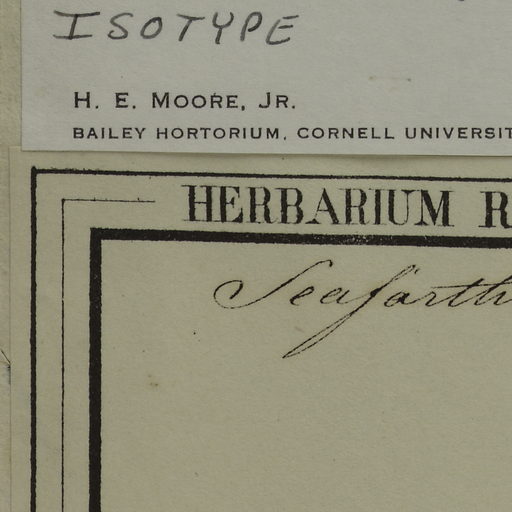 ISOTYPE
H. E. MOORE, JR.
BAILEY HORTORIUM, CORNELL UNIVERSIT
HERBARIUM R
Seaforth